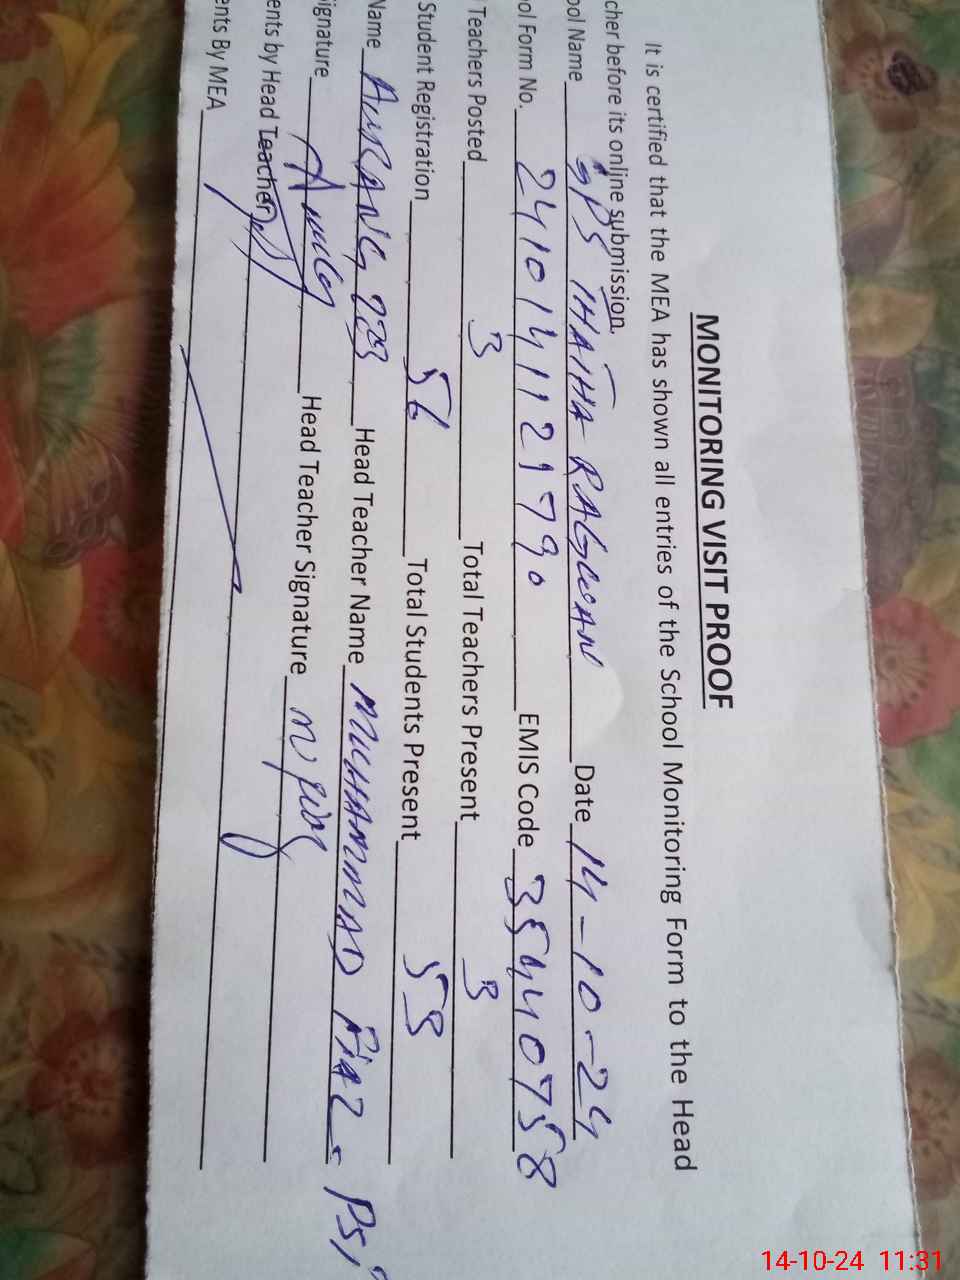 MONITORING VISIT PROOF
It is certified that the MEA has shown all entries of the School Monitoring Form to the Head
cher before its online submission.
ool Name GPS THATHA RAGWAN Date 14-10-24
ol Form No. EMIS Code 35440758
Teachers Posted 3 Total Teachers Present 3
Student Registration 56 Total Students Present 53
Name Head Teacher Name MUHAMMAD
ignature Head Teacher Signature
ents by Head Teacher
ents By MEA
14-10-24 11:31